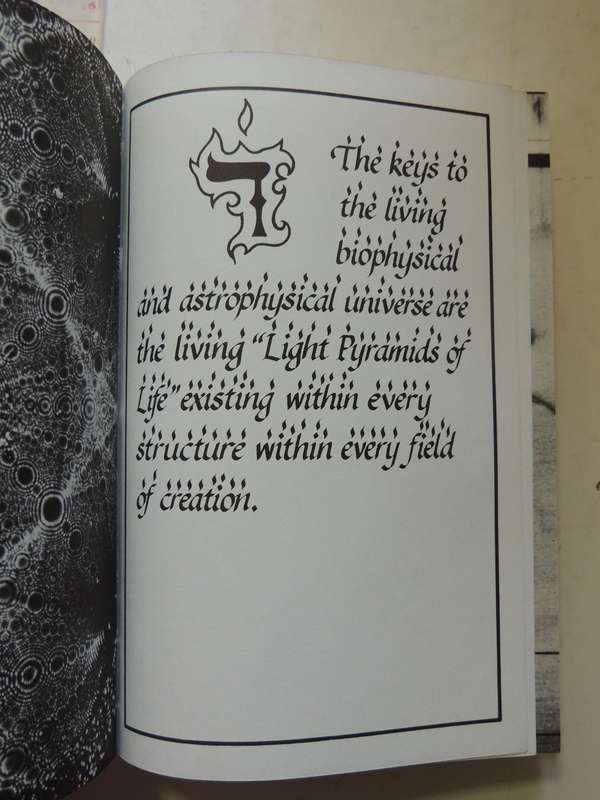 ד
The keys to
the living
biophysical
and astrophysical universe are
the living “Light Pyramids of
Life” existing within every
structure within every field
of creation.